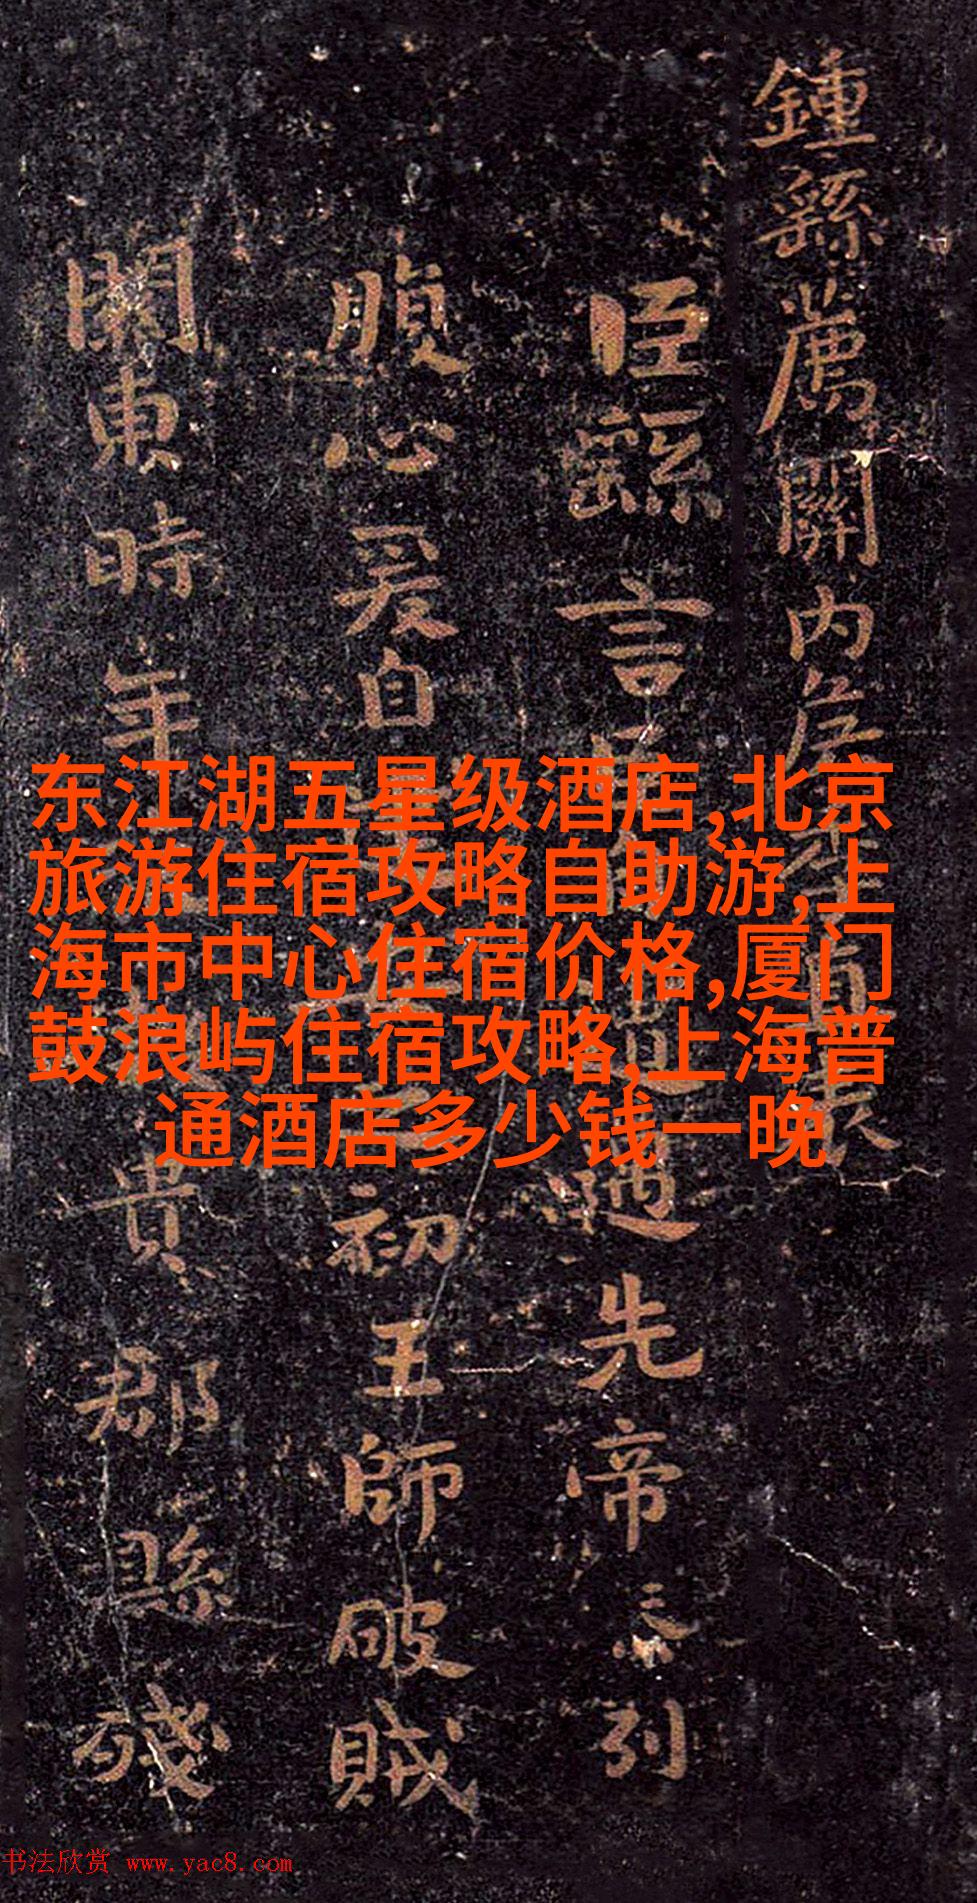 鍾繇薦關内侯直表
臣繇言自遇先帝忝列
腹心爰自初王師破賊
關東時年貴郡縣殘
东江湖五星级酒店,北京
旅游住宿攻略自助游,上
海市中心住宿价格,厦门
鼓浪屿住宿攻略,上海普
通酒店多少钱一晚
书法欣赏 www.yac8.com